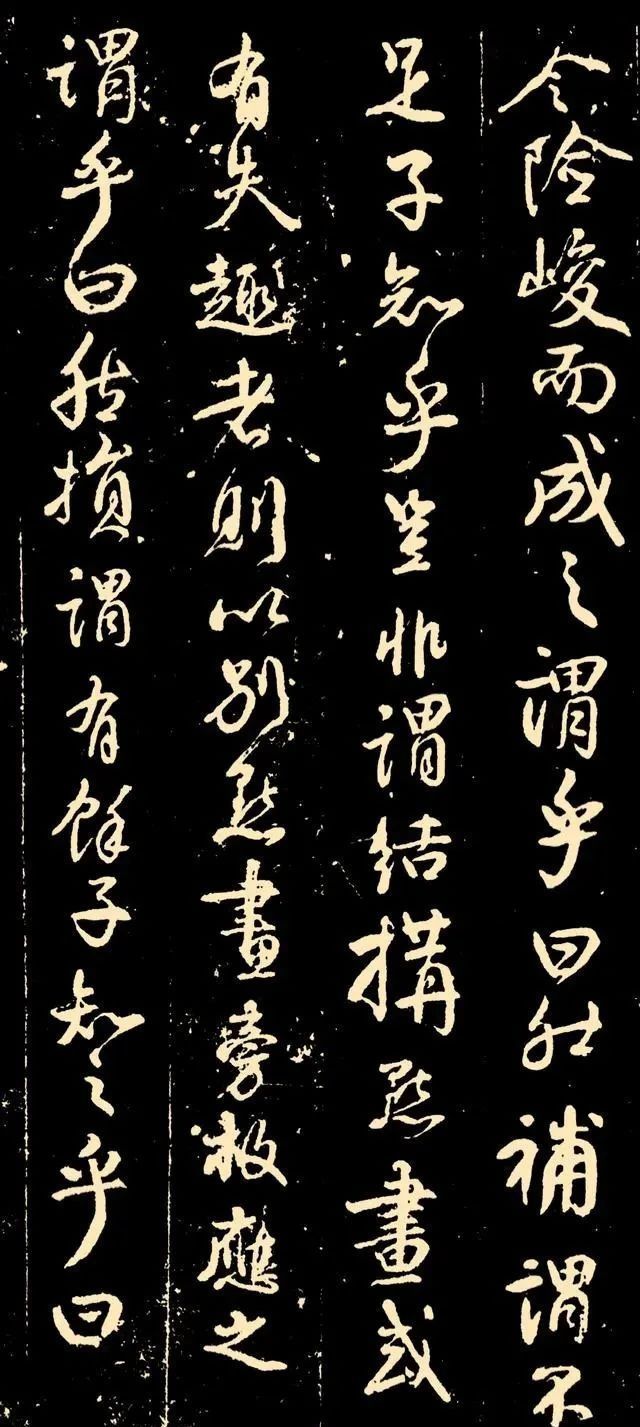 令险峻而成之謂乎曰然補謂不
足子知乎豈非謂結搆點畫或
有失趣者則以别點畫旁救應之
謂乎曰然損謂有餘子知之乎曰